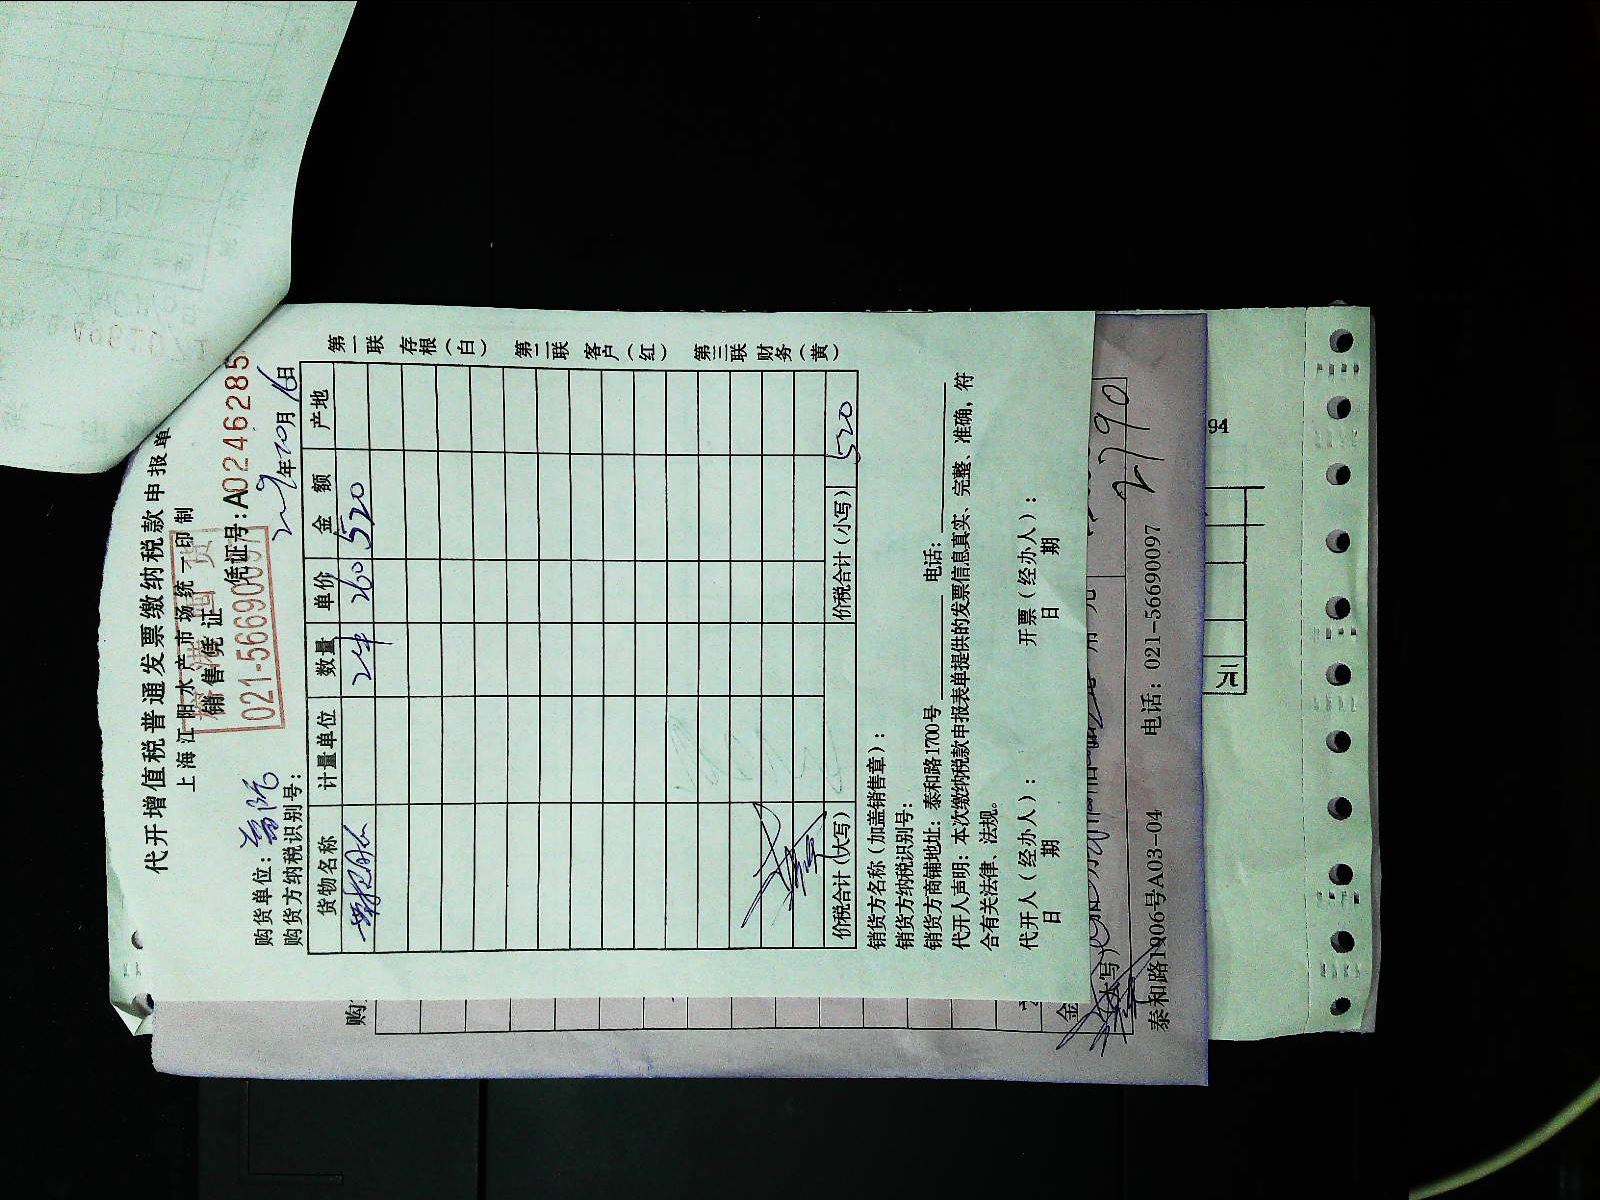 代开增值税普通发票缴纳税款申报单
上海江阳水产市场统一印制
销售凭证
凭证号:A0246285
021-56690097
年10月16日
购货单位:
购货方纳税识别号:
货物名称 计量单位 数量 单价 金额 产地
2件 260 520
价税合计(大写) 价税合计(小写) 520
第一联 存根(白) 第二联 客户(红) 第三联 财务(黄)
销货方名称(加盖销售章):
销货方纳税识别号:
销货方商铺地址:泰和路1700号 电话:
代开人声明:本次缴纳税款申报表单提供的发票信息真实、完整、准确,符
合有关法律、法规。
代开人(经办人): 开票(经办人):
日 期 日 期
购
金
大写) 2790
泰和路1906号A03-04 电话:021-56690097
94
元